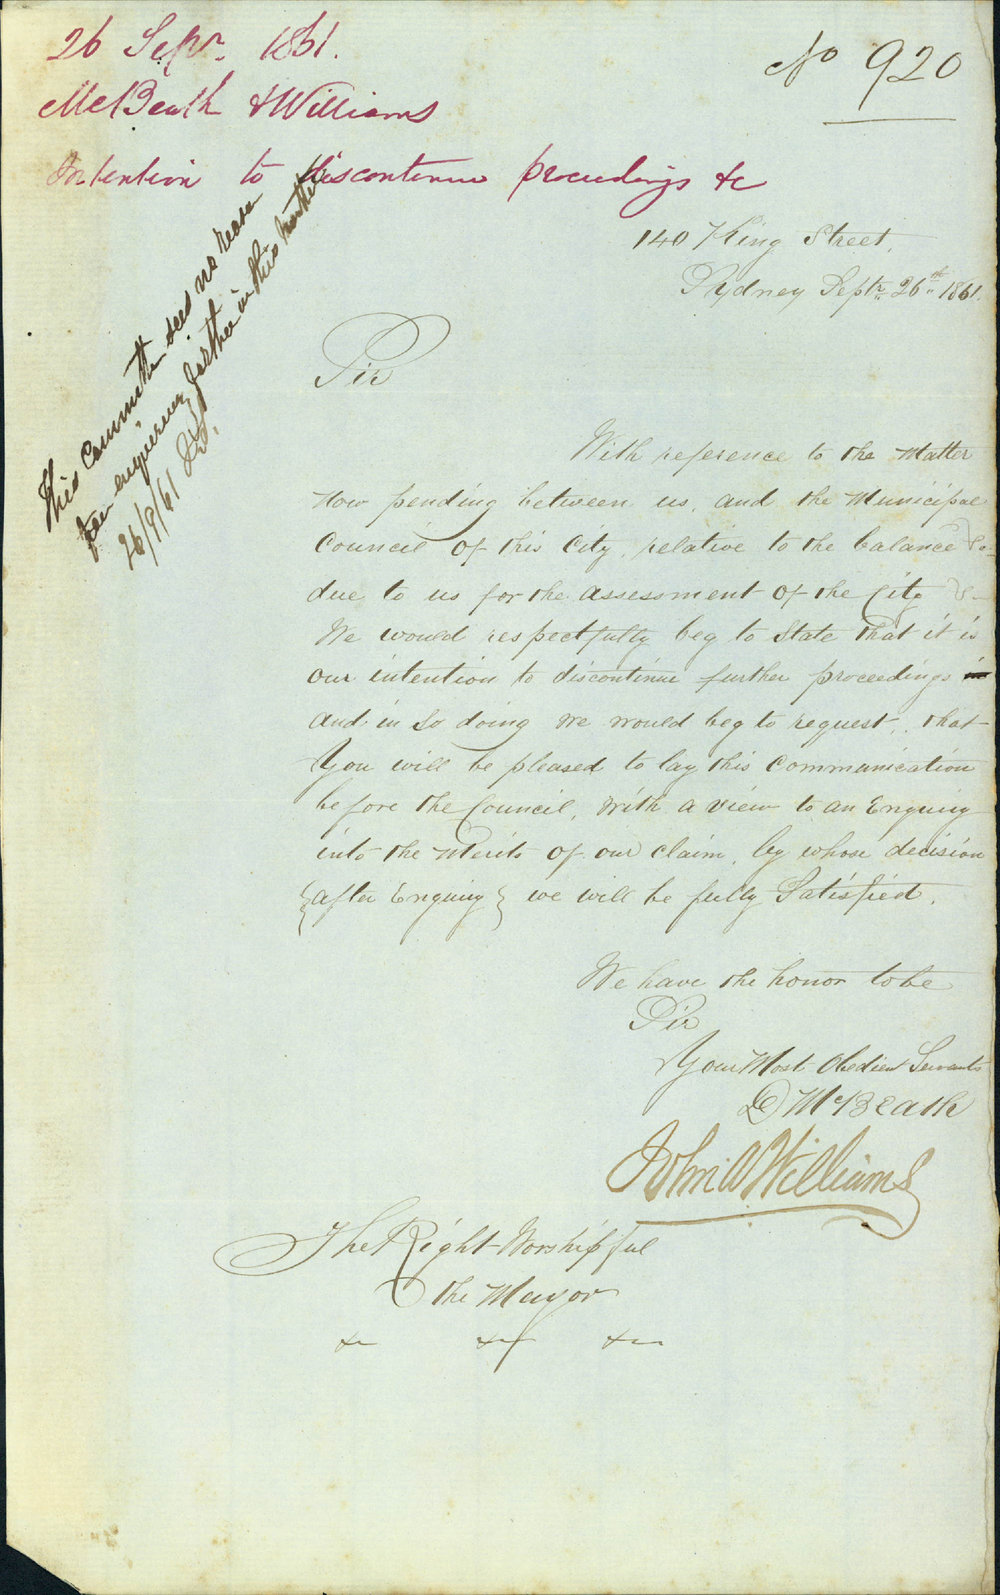 26 Sepr. 1861.
No 920
McBeath & Williams
Intention to discontinue proceedings &c
This Committee sees no reason
for enquiring further in this matter
26/9/61
140 King Street,
Sydney Septr. 26th 1861.
Sir
With reference to the Matter
now pending between us, and the Municipal
Council of this City, relative to the balance
due to us for the assessment of the City
We would respectfully beg to State that it is
our intention to discontinue further proceedings
and in So doing we would beg to request, that
You will be pleased to lay this Communication
before the Council, with a view to an Enquiry
into the Merits of our claim, by whose decision
{after Enquiry} we will be fully Satisfied.
We have the honor to be
Sir
Your Most Obedient Servants
D McBeath
John W Williams
The Right Worshipful
the Mayor
&c &c &c